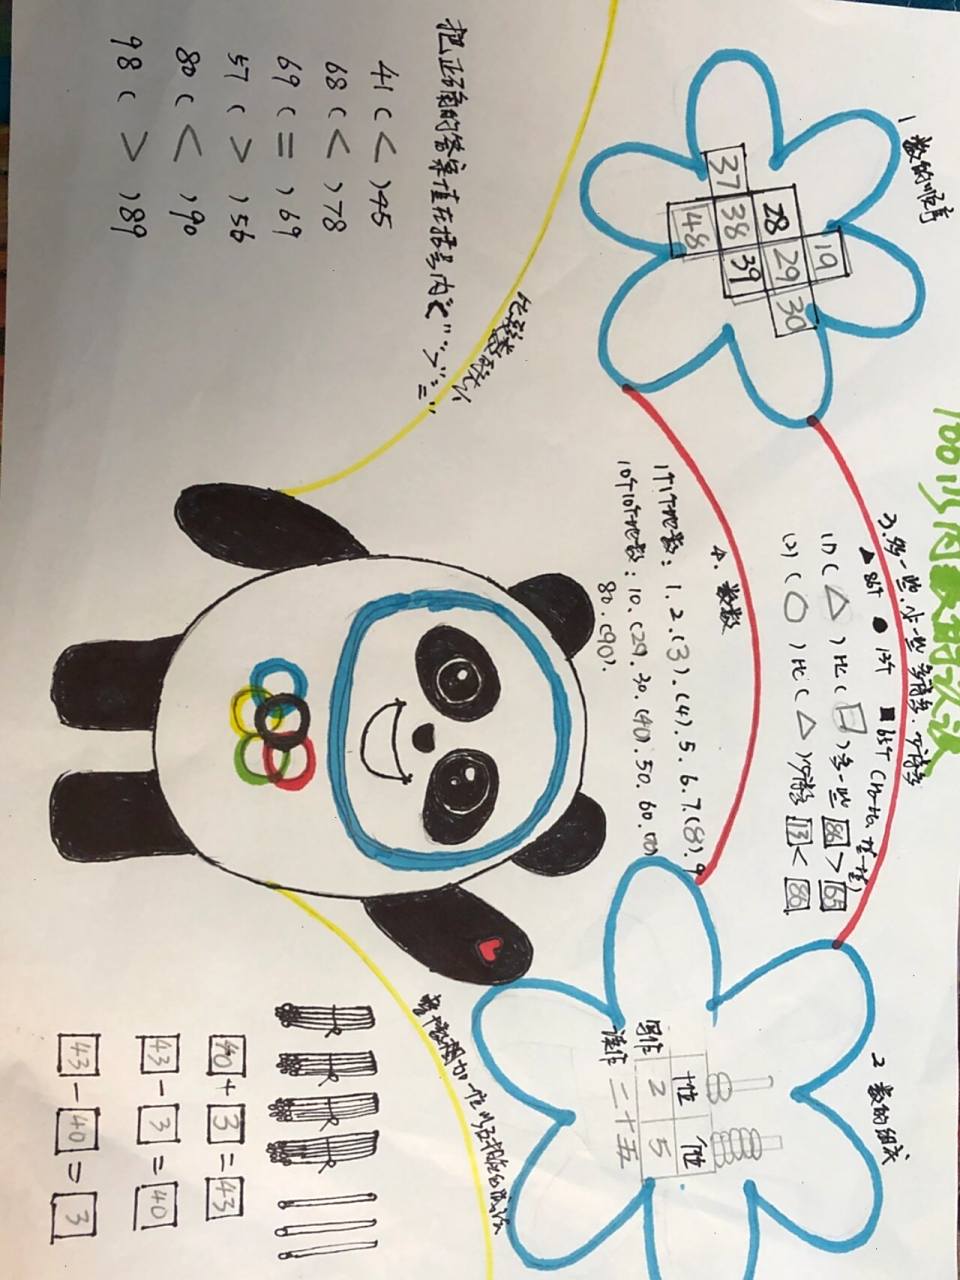 100以内数的认识
1 数的顺序
19
28 29 30
37 38 39
48
3.多一些.少一些 多得多.少得多
▲86个 ●13个 ■65个
(1)(△)比(□)多一些 86>65
(2)(○)比(△)少得多 13<86
4. 数数
1个1个地数：1.2.(3).(4).5.6.7.(8).9
10个10个地数：10.(20).30.(40).50.60.(70)
80.(90).
2 数的组成
十位 个位
写作 2 5
读作 二十五
比较数的大小
把正确的答案填在括号内"<"">""="
41(<)45
68(<)78
69(=)69
57(>)56
80(<)90
98(>)89
整十数加一位数及相应的减法
40+3=43
43-3=40
43-40=3